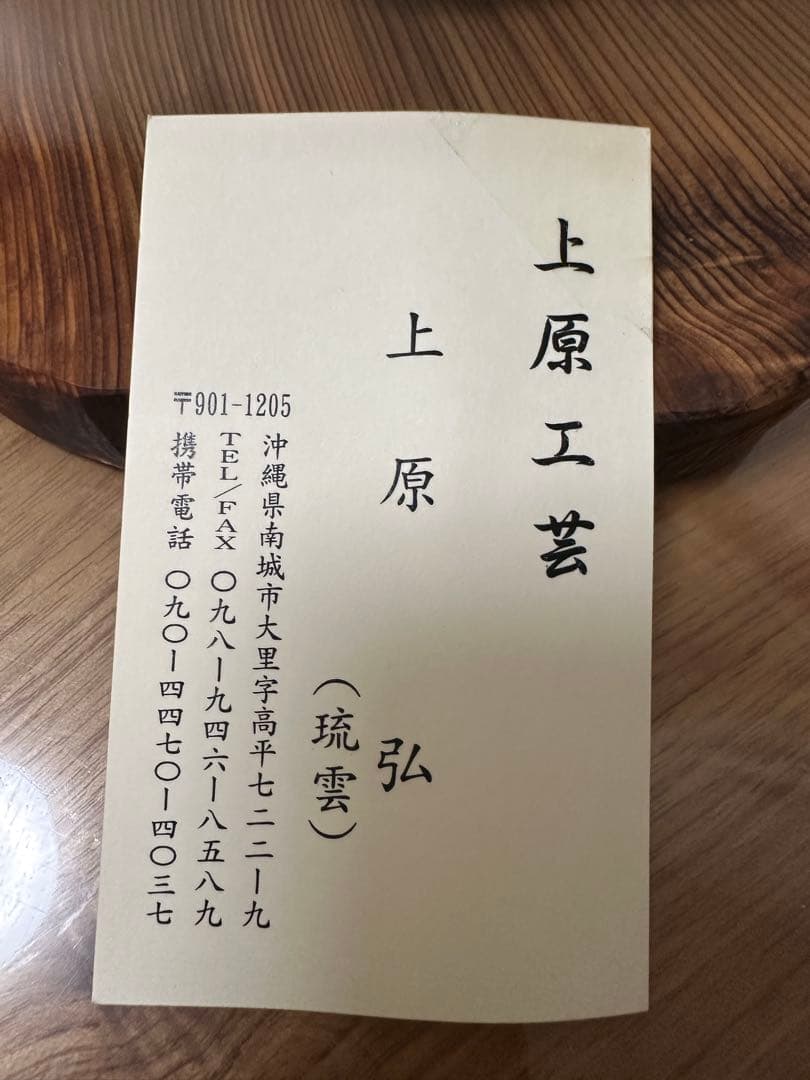 上原工芸
上原 弘
（琉雲）
〒901-1205
沖縄県南城市大里字高平七二二ー九
TEL/FAX 〇九八ー九四六ー八五八九
携帯電話 〇九〇ー四四七〇ー四〇三七